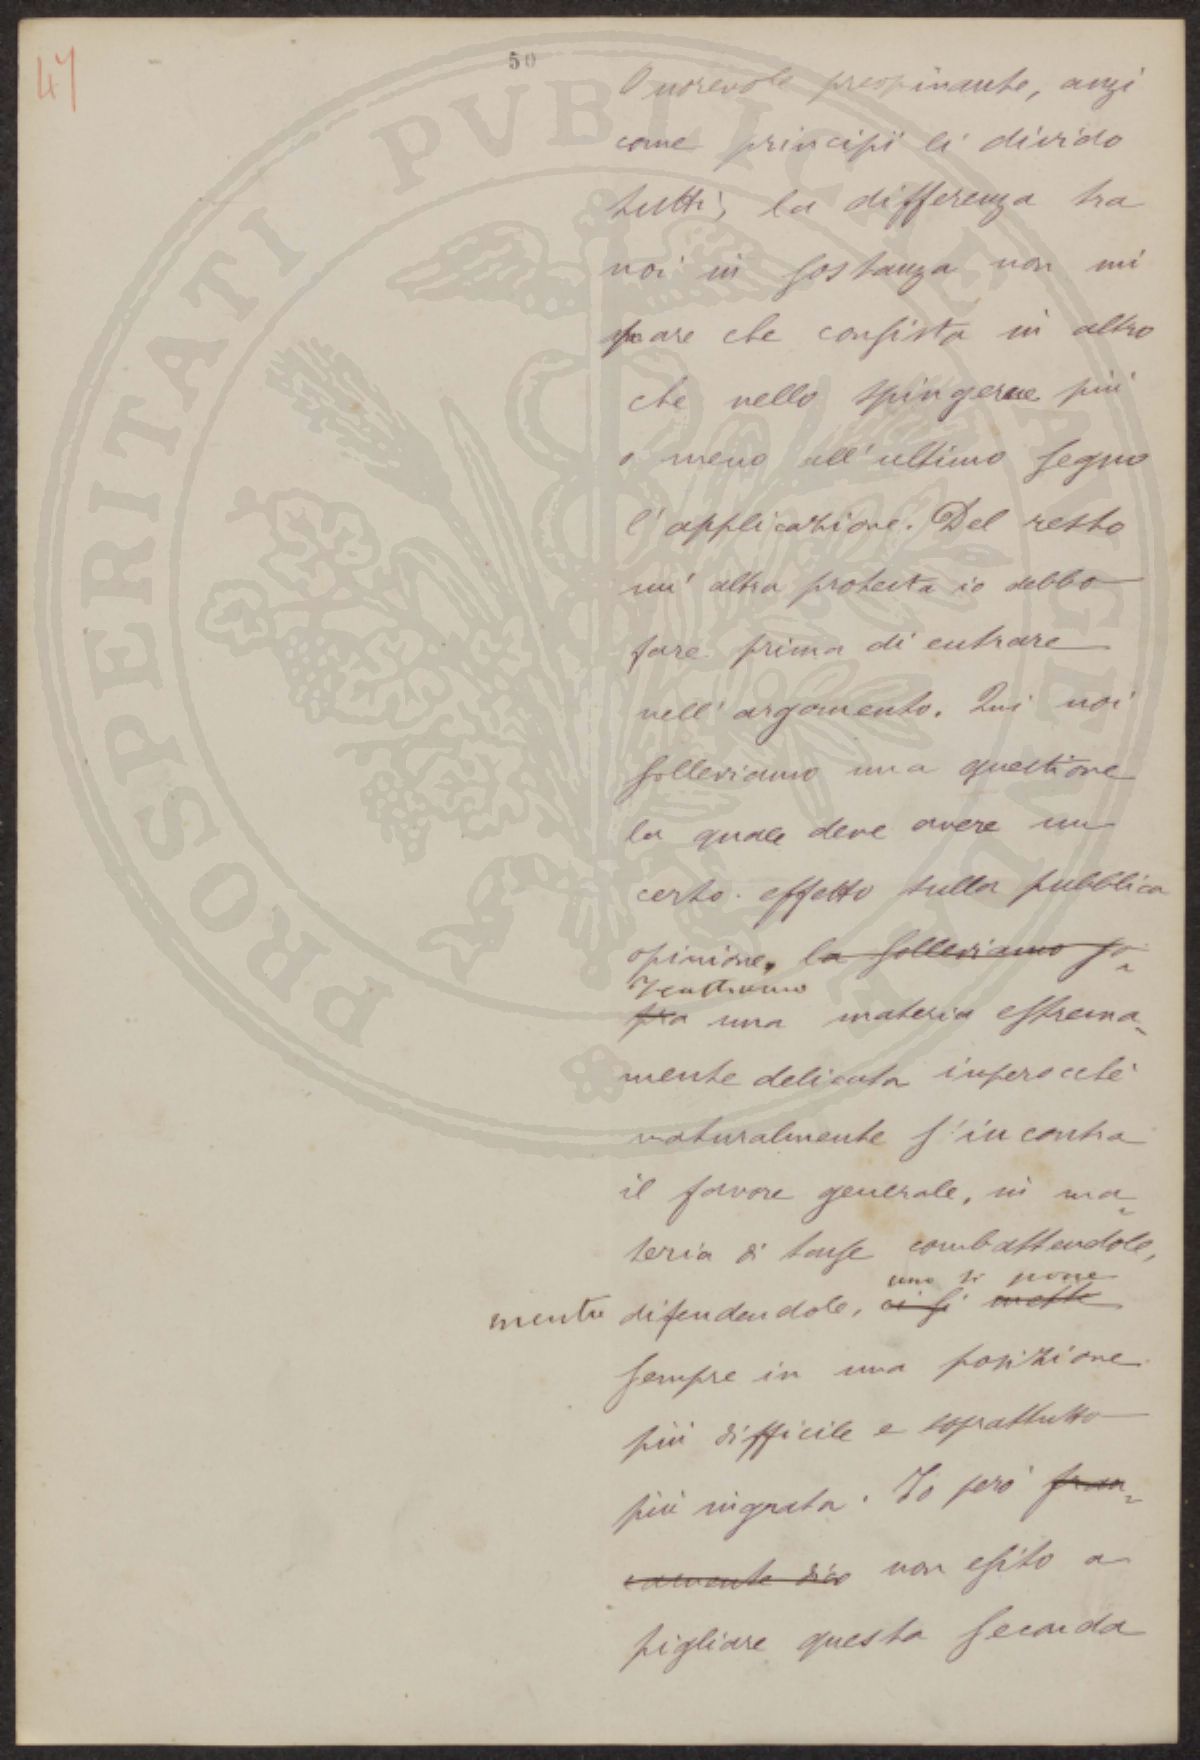 47
50
Onorevole preopinante, anzi
come principii li divido
tutti, la differenza tra
noi in sostanza non mi
pare che consista in altro
che nello spingerne più
o meno all'ultimo segno
l'applicazione. Del resto
un'altra protesta io debbo
fare prima di entrare
nell'argomento. Qui noi
solleviamo una questione
la quale deve avere un
certo effetto sulla pubblica
opinione, la solleviamo so-
Trattiamo
pra una materia estrema-
mente delicata imperocché
naturalmente s'incontra
il favore generale, in ma-
teria di tasse combattendole,
uno si pone
mentre difendendole, ci si mette
sempre in una posizione
più difficile e soprattutto
più ingrata. Io però fran-
camente dico non esito a
pigliare questa seconda
PROSPERITATI PVBLICAE AVGENDAE